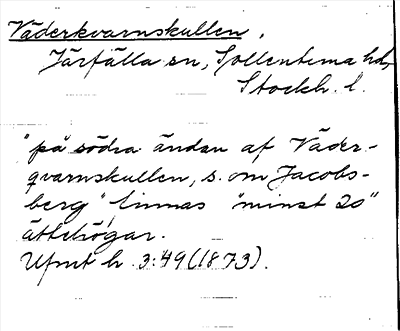 Väderkvarnskullen.
Järfälla sn, Sollentuna hd,
Stockh. l.
"på södra ändan af Väder-
qvarnskullen, s. om Jacobs-
berg" finnas "minst 20"
ättehögar.
Ufmt h. 3:49 (1873).